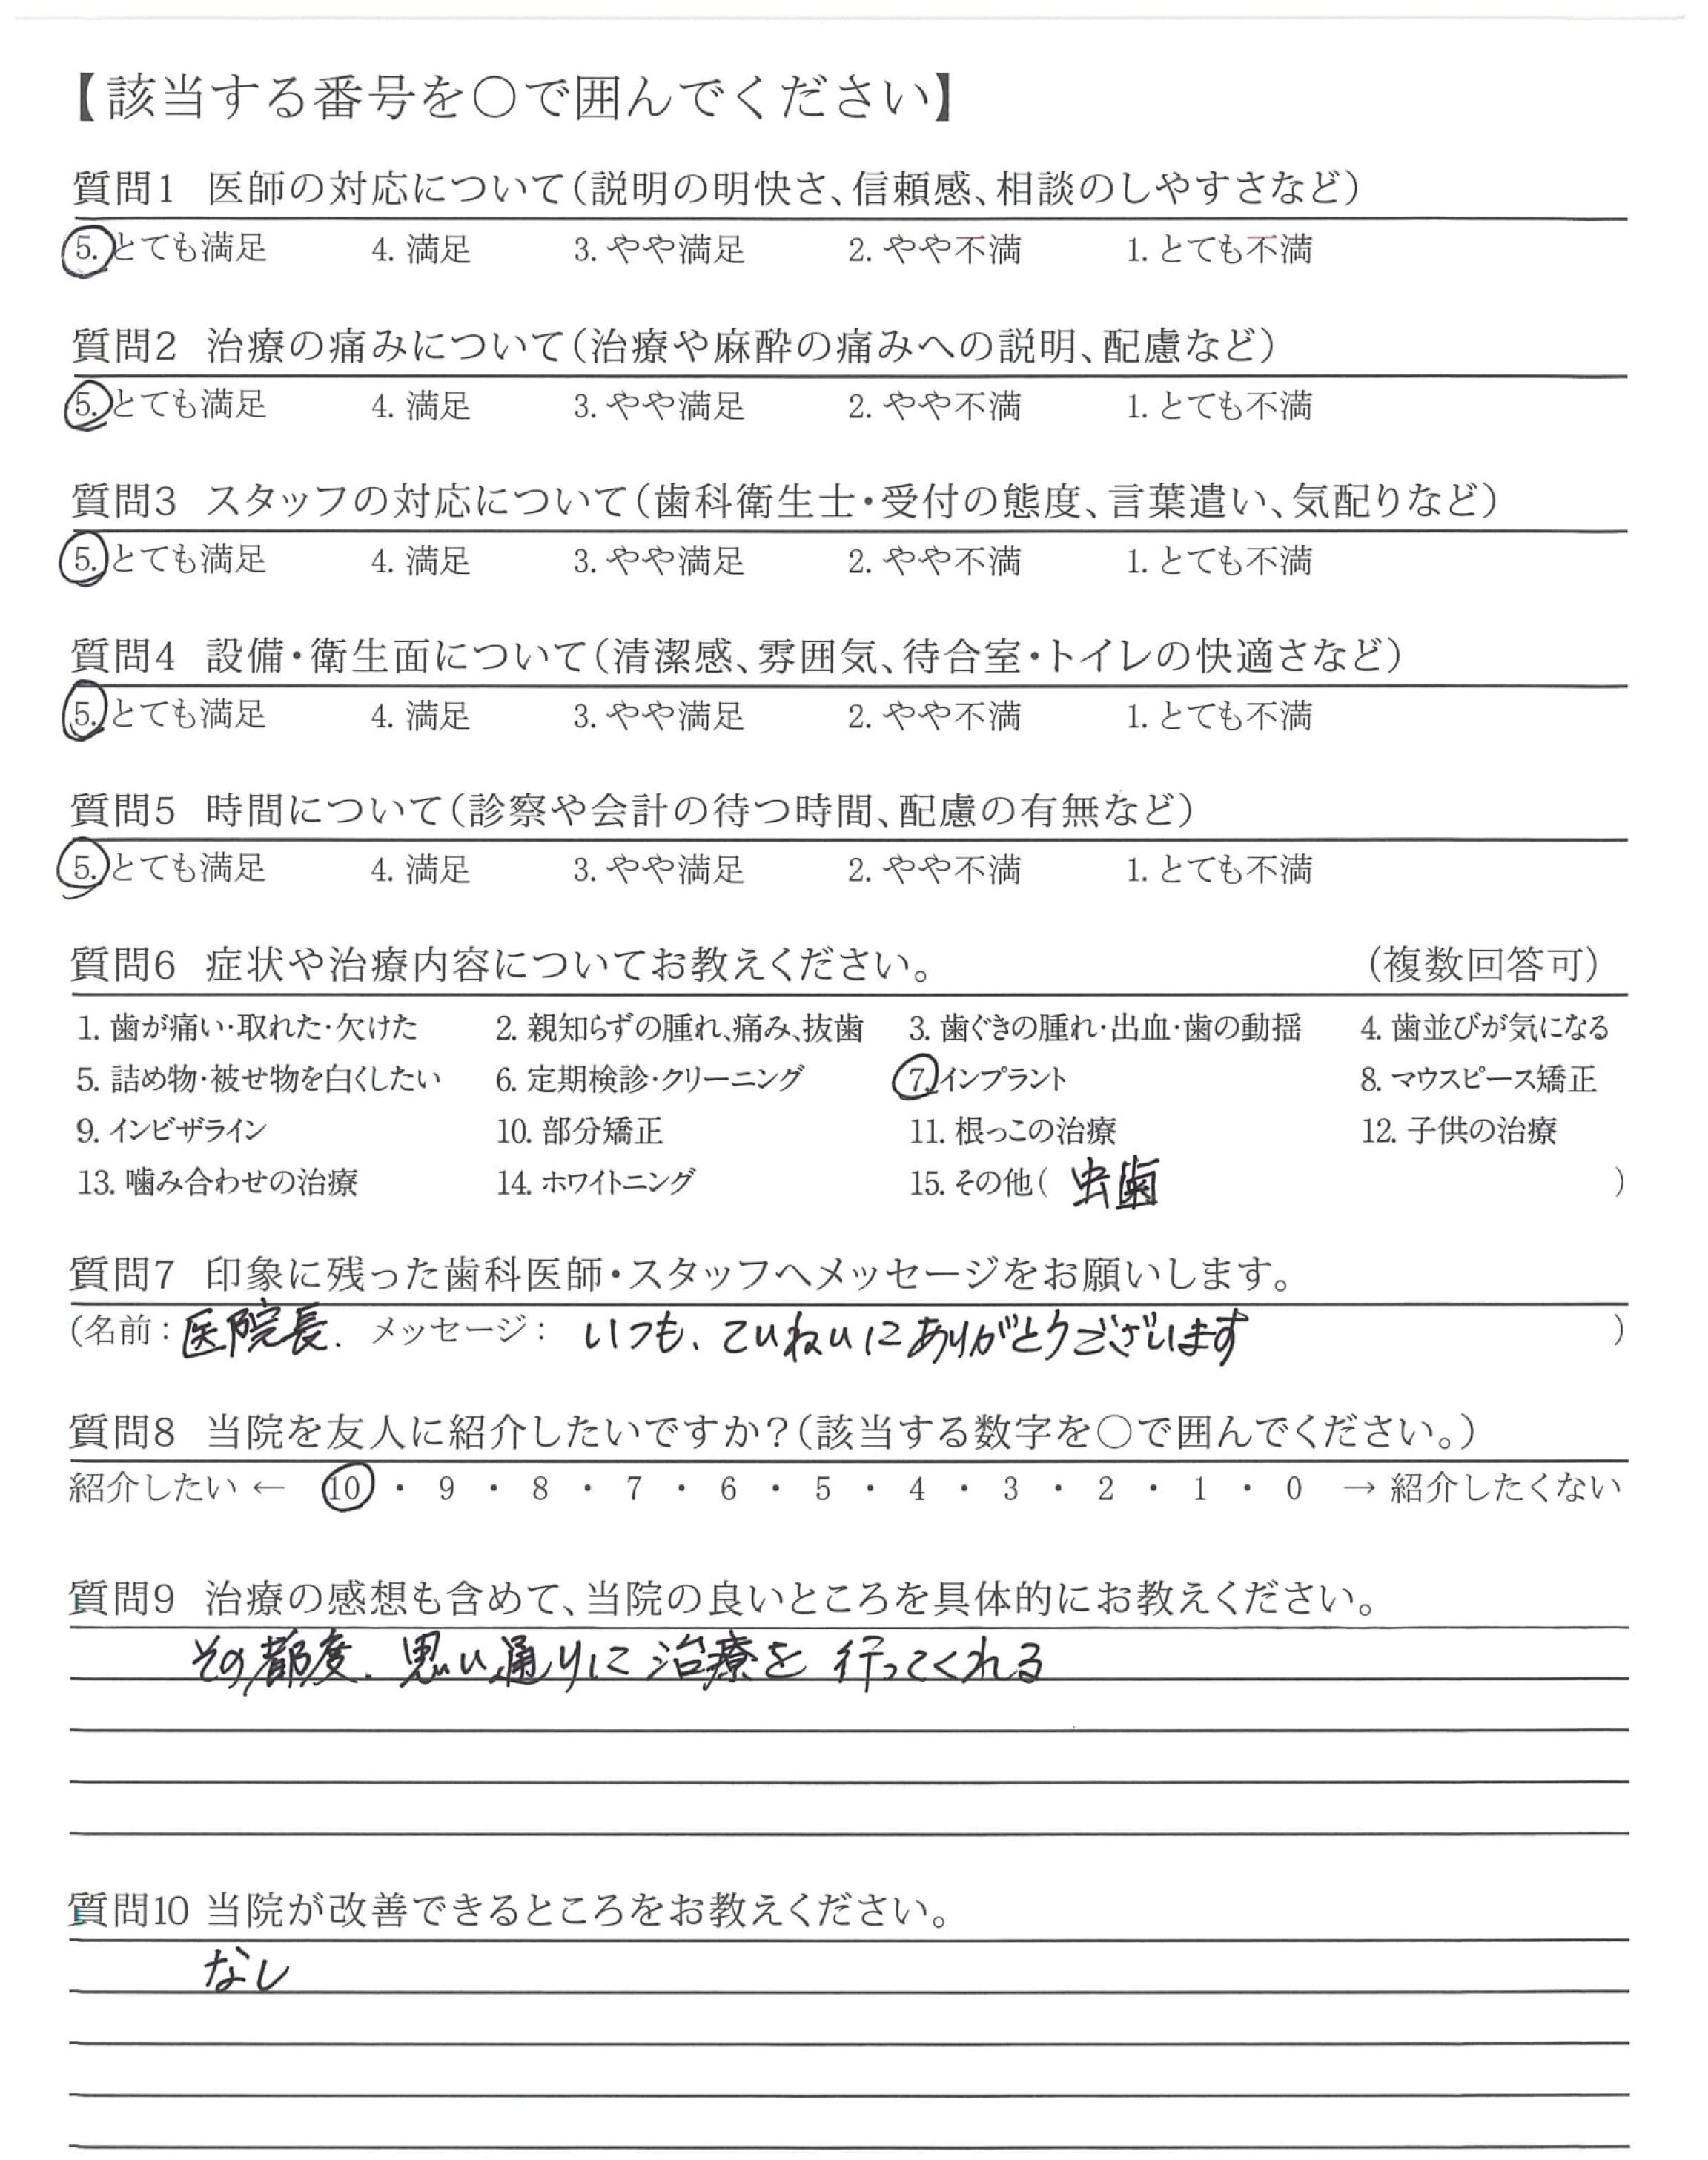 【該当する番号を○で囲んでください】
質問1 医師の対応について(説明の明快さ、信頼感、相談のしやすさなど)
5. とても満足 4. 満足 3. やや満足 2. やや不満 1. とても不満
質問2 治療の痛みについて(治療や麻酔の痛みへの説明、配慮など)
5. とても満足 4. 満足 3. やや満足 2. やや不満 1. とても不満
質問3 スタッフの対応について(歯科衛生士・受付の態度、言葉遣い、気配りなど)
5. とても満足 4. 満足 3. やや満足 2. やや不満 1. とても不満
質問4 設備・衛生面について(清潔感、雰囲気、待合室・トイレの快適さなど)
5. とても満足 4. 満足 3. やや満足 2. やや不満 1. とても不満
質問5 時間について(診察や会計の待つ時間、配慮の有無など)
5. とても満足 4. 満足 3. やや満足 2. やや不満 1. とても不満
質問6 症状や治療内容についてお教えください。 (複数回答可)
1. 歯が痛い・取れた・欠けた 2. 親知らずの腫れ、痛み、抜歯 3. 歯ぐきの腫れ・出血・歯の動揺 4. 歯並びが気になる
5. 詰め物・被せ物を白くしたい 6. 定期検診・クリーニング 7. インプラント 8. マウスピース矯正
9. インビザライン 10. 部分矯正 11. 根っこの治療 12. 子供の治療
13. 噛み合わせの治療 14. ホワイトニング 15. その他( 虫歯 )
質問7 印象に残った歯科医師・スタッフへメッセージをお願いします。
(名前: 医院長. メッセージ: いつも、ていねいにありがとうございます )
質問8 当院を友人に紹介したいですか?(該当する数字を○で囲んでください。)
紹介したい ← 10 ・ 9 ・ 8 ・ 7 ・ 6 ・ 5 ・ 4 ・ 3 ・ 2 ・ 1 ・ 0 → 紹介したくない
質問9 治療の感想も含めて、当院の良いところを具体的にお教えください。
その都度、思い通りに治療を行ってくれる
質問10 当院が改善できるところをお教えください。
なし